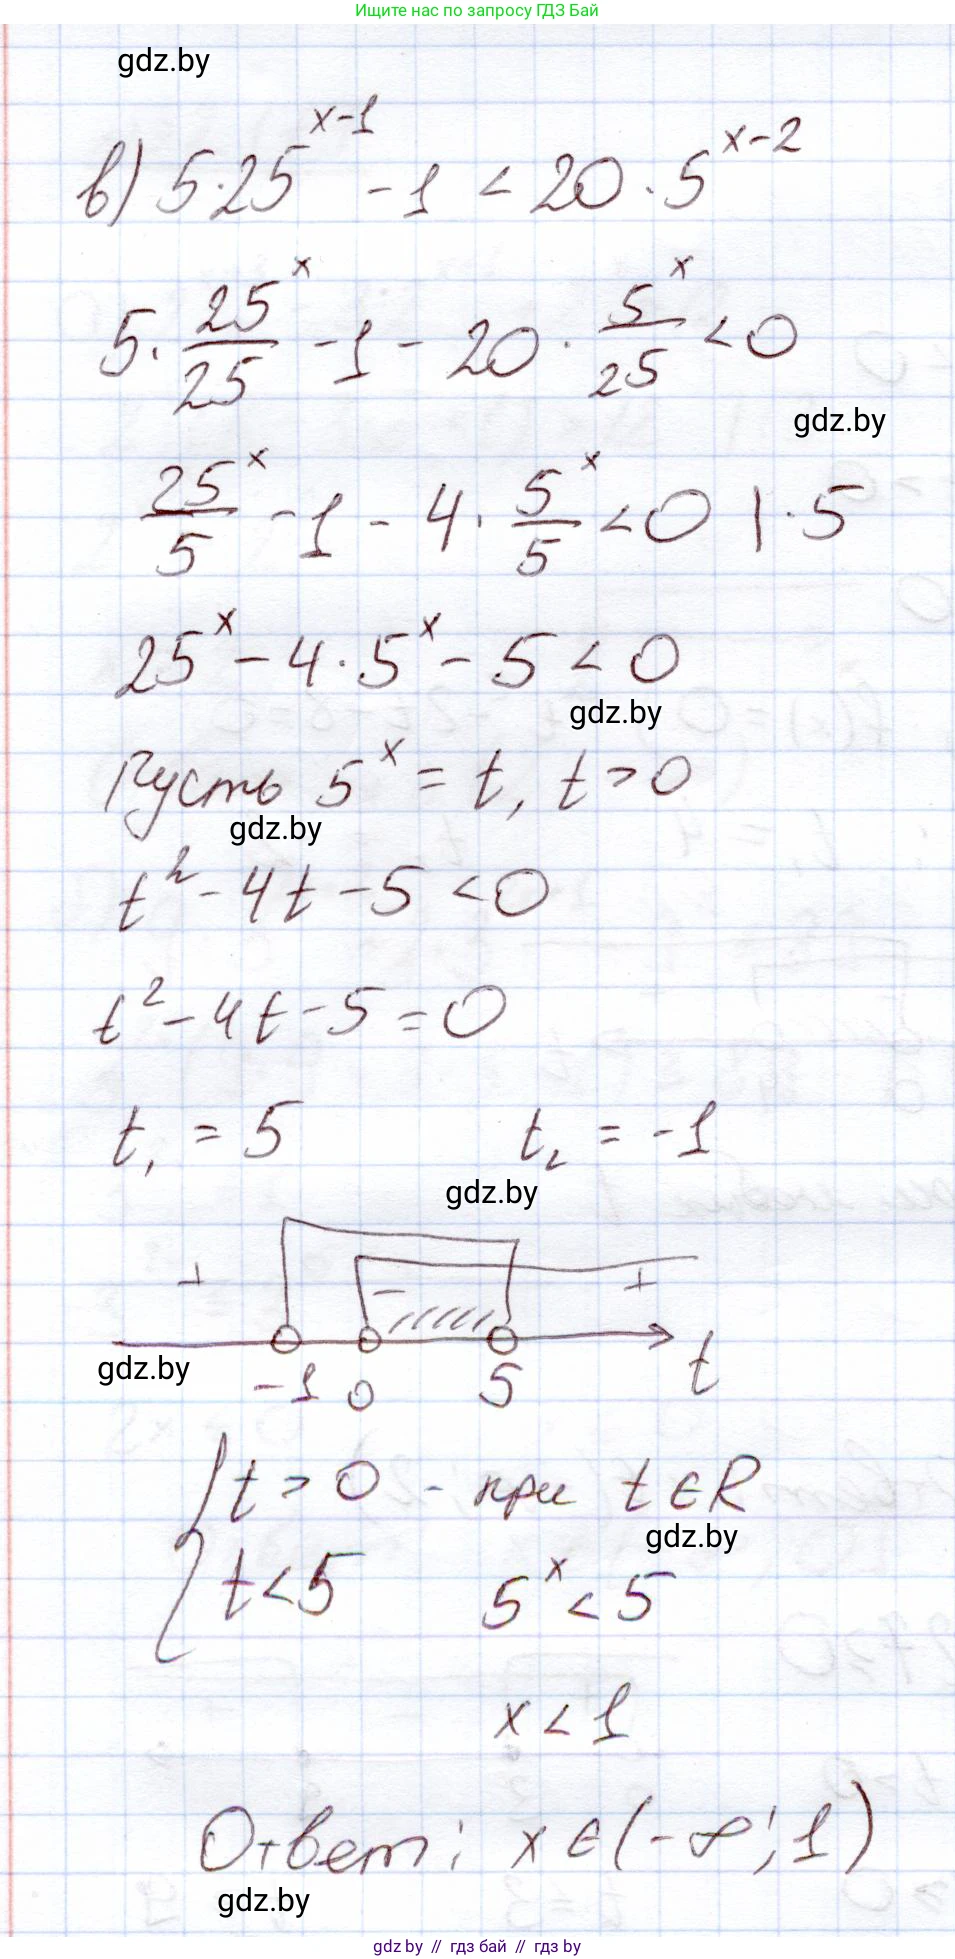 Ищите нас по запросу ГДЗ Бай
gdz.by
в) 5·25^(x-1) - 1 < 20·5^(x-2)
5·25^x/25 - 1 - 20·5^x/25 < 0
gdz.by
25^x/5 - 1 - 4·5^x/5 < 0 |·5
25^x - 4·5^x - 5 < 0
gdz.by
Пусть 5^x = t, t > 0
gdz.by
t² - 4t - 5 < 0
t² - 4t - 5 = 0
t₁ = 5 t₂ = -1
gdz.by
+ - +
gdz.by
-1 0 5 t
{ t > 0 - при t ∈ R
gdz.by
t < 5 5^x < 5
x < 1
Ответ: x ∈ (-∞; 1)
gdz.by
gdz.by // гдз бай // гдз by